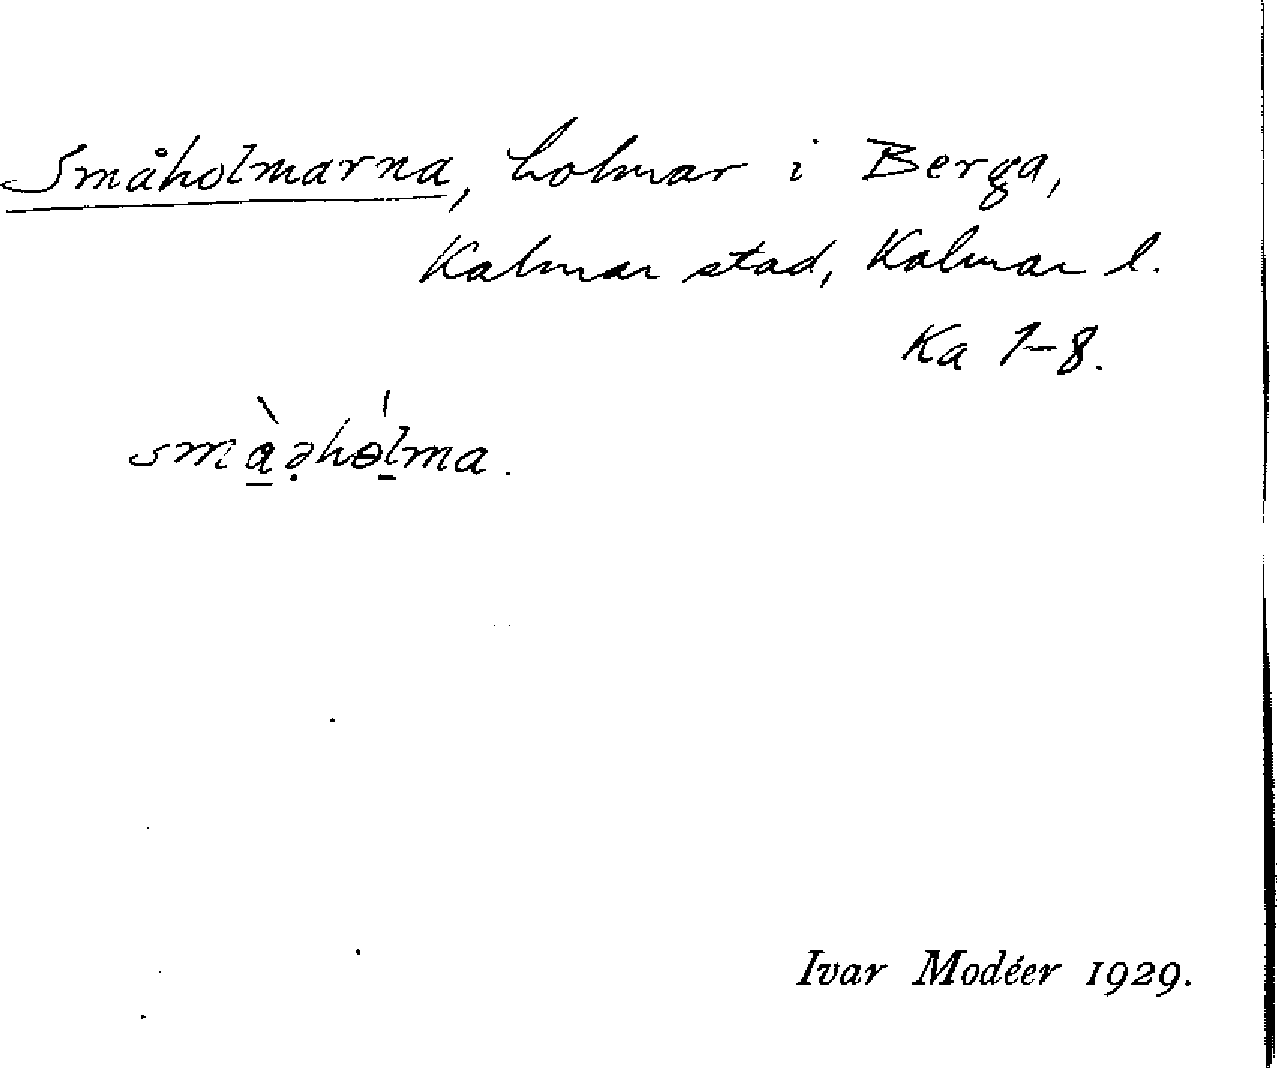 Småholmarna, holmar i Berga,
Kalmar stad, Kalmar l.
Ka 7-8.
smàəhɵ́lma.
Ivar Modéer 1929.